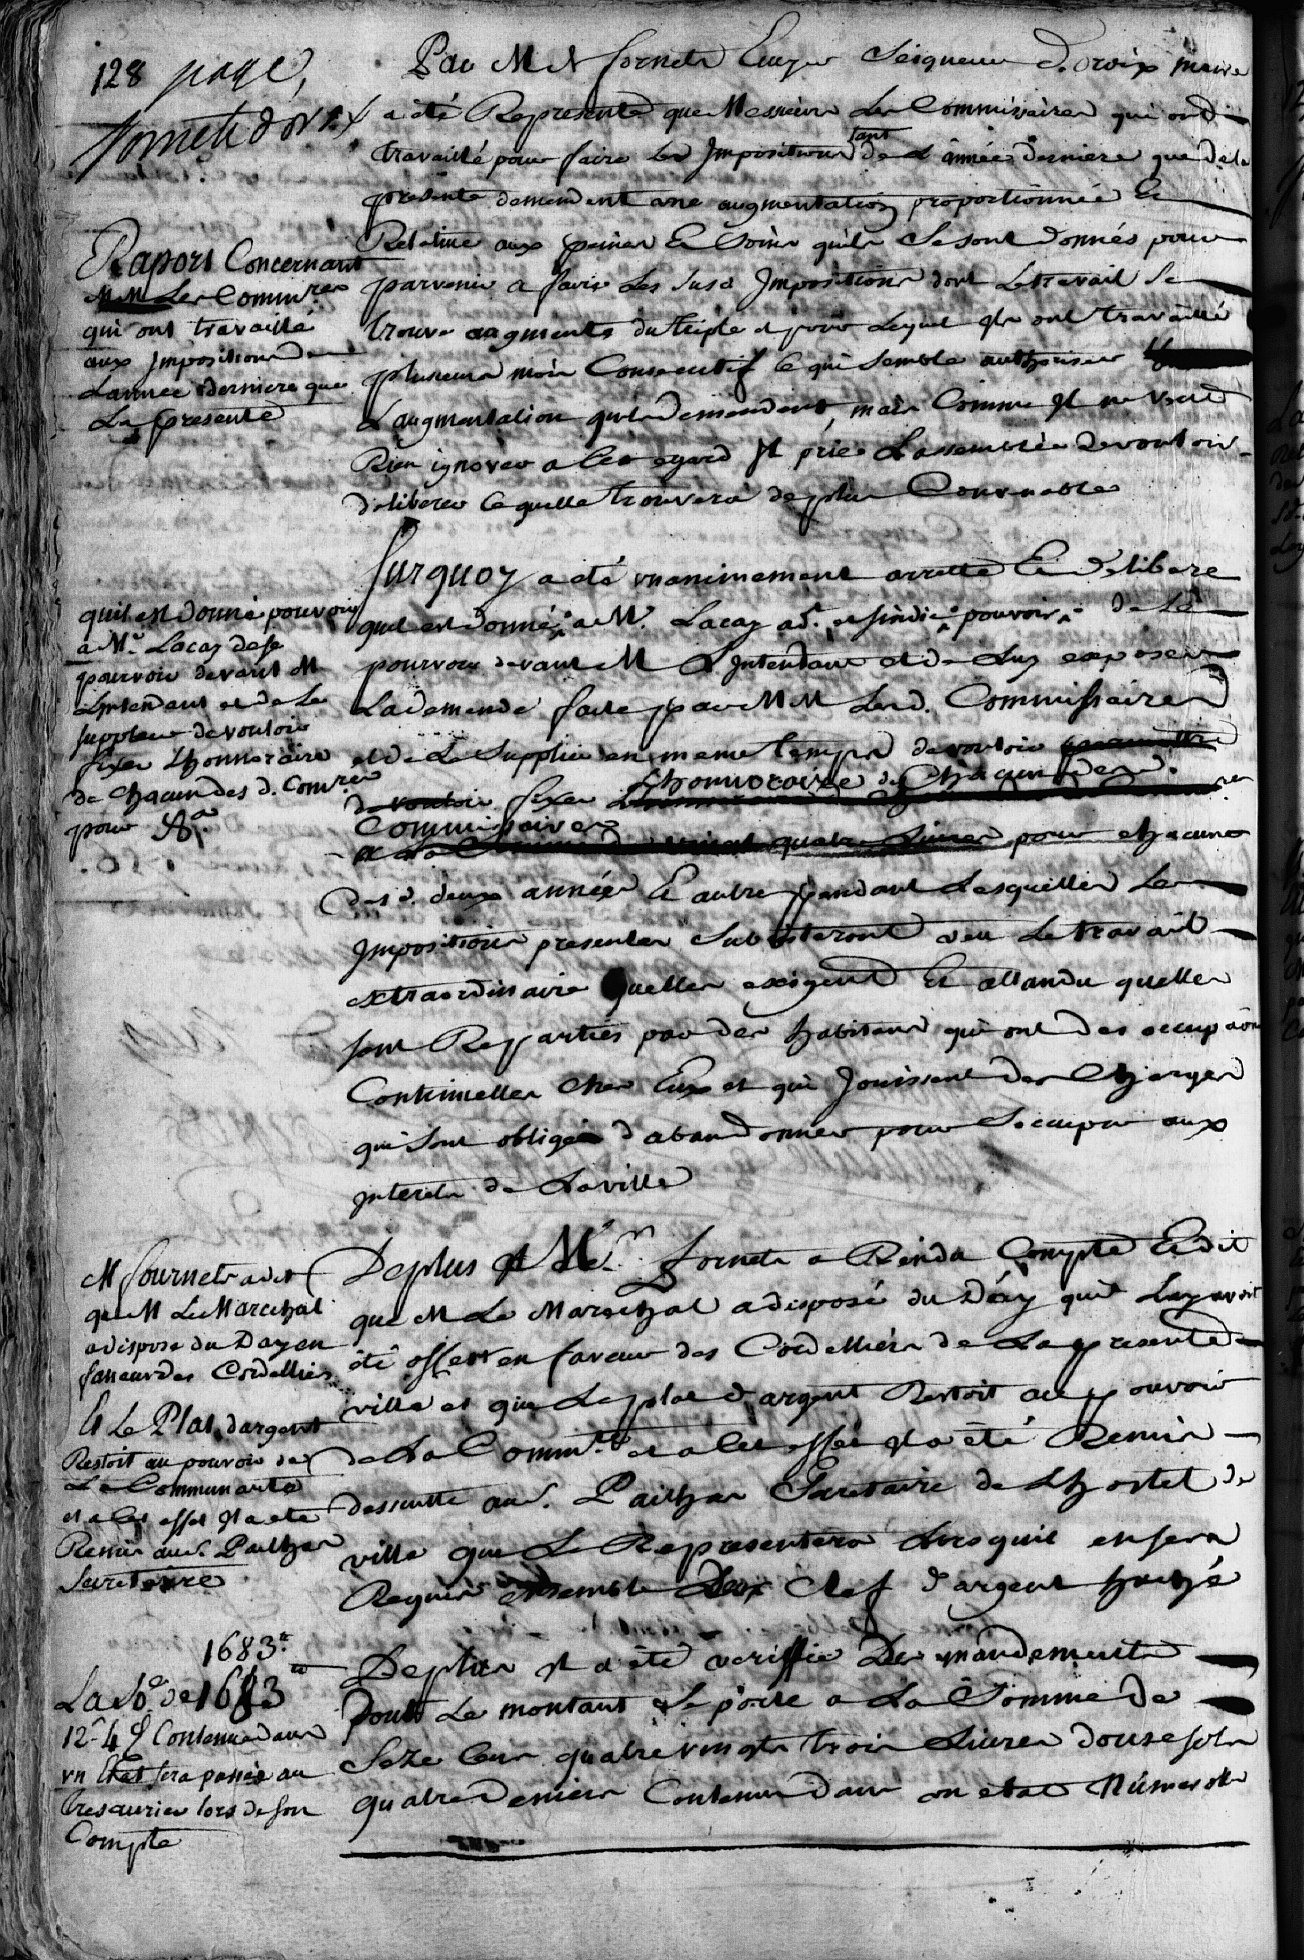 128 page,
fornets dorx
Par M. fornets Ecuyer Seigneur d'oroix maire
a été Representé que Messieurs Les Commissaires qui ont
travaillé pour faire Les Impositions tant de L'année Derniere que de la
presente demandent une augmentation proportionnée Et
Relative aux peines Et Soins qu'ils Se sont donnés pour
parvenir a faire Les Susd Impositions dont Le travail Se
trouve augmenté du triple et pour Lequel Ils ont travaillé
plusieurs mois Consecutif Ce qui Semble authoriser
L'augmentation qu'ils demandent, mais Comme Il ne veut
Rien ignorer a Cet egard Il prie L'assemblée de vouloir
deliberer Ce quelle trouvera de plus Convenable
Raport Concernant
MM Les Comm.res
qui ont travaillé
aux Impositions de
Lannée derniere que
La presente
Surquoy a été unanimement arretté Et Delibere
quil est donné a M. Lacaz ad. et sindic pouvoir de Se
pourvoir devant M L'Intendant et de Luy exposer
La demande faite par MM Les d. Commissaires
et de Le Supplier en meme temps de vouloir
fixer Lhonnoraire de Chacun des d.
Commissaires
pour chacune
des d. deux années Et autres pendant Lesquelles Les
Impositions presentes Subsisteront veu Le travail
extraordinaire quelles exigent Et attandu quelles
sont Reparties par des habitans qui ont des occupaons
Continuelles Ches Eux et qui Jouissent des Charges
qui Sont obligés d'abandonner pour S'occuper aux
interets de La ville
quil est donné pouvoir
a M.r Lacaz de se
pourvoir devant M
Lintendant et de Le
supplier de vouloir
fixer Lhonnoraire
de Chacun des d. Com.res
pour
De plus M.r fornets a Rendu Compte Et dit
que M Le Marechal a disposé du Day quil Luy avoit
été offert en faveur des Cordelliers de La presente
ville et que Le plat d'argent Restoit au pouvoir
de La Comm.té et a Cet effet Il a été Remis
dessuitte au S. Pailhas Secretaire de Lhostel de
ville que Le Representera Lorsquil en sera
Requis ensemble Deux Clef d'argent
M fournets a dit
que M Le Marechal
a dispose du Day en
faueur des Cordelliers
Et Le Plat dargent
Restoit au pouvoir de
La Communauté
et a Cet effet Il a été
Remis au S. Pailhas
Secretaire
De plus Il a été veriffié Des mandements
Dont Le montant Se porte a La Somme De
Seze Cens quatre vingts trois Livres douse sols
quatre Deniers Contenus Dans un etat Numerotté
1683.tt
La S.e de 1683 tt
12 s 4 d Contenue dans
un Etat sera passée au
Tresaurier lors de son
Compte